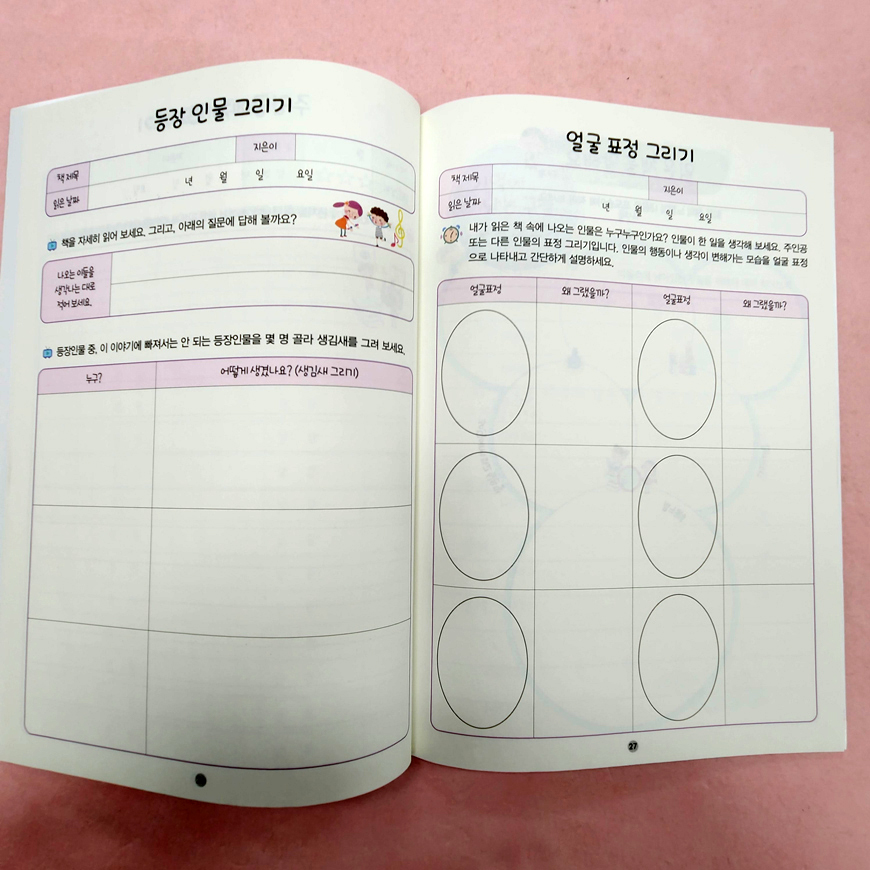 등장 인물 그리기
책 제목
지은이
읽은 날짜 년 월 일 요일
책을 자세히 읽어 보세요. 그리고, 아래의 질문에 답해 볼까요?
나오는 이들을
생각나는 대로
적어 보세요.
등장인물 중, 이 이야기에 빠져서는 안 되는 등장인물을 몇 명 골라 생김새를 그려 보세요.
누구? 어떻게 생겼나요? (생김새 그리기)
얼굴 표정 그리기
책 제목
지은이
읽은 날짜 년 월 일 요일
내가 읽은 책 속에 나오는 인물은 누구누구인가요? 인물이 한 일을 생각해 보세요. 주인공
또는 다른 인물의 표정 그리기입니다. 인물의 행동이나 생각이 변해가는 모습을 얼굴 표정
으로 나타내고 간단하게 설명하세요.
얼굴표정 왜 그랬을까? 얼굴표정 왜 그랬을까?
27